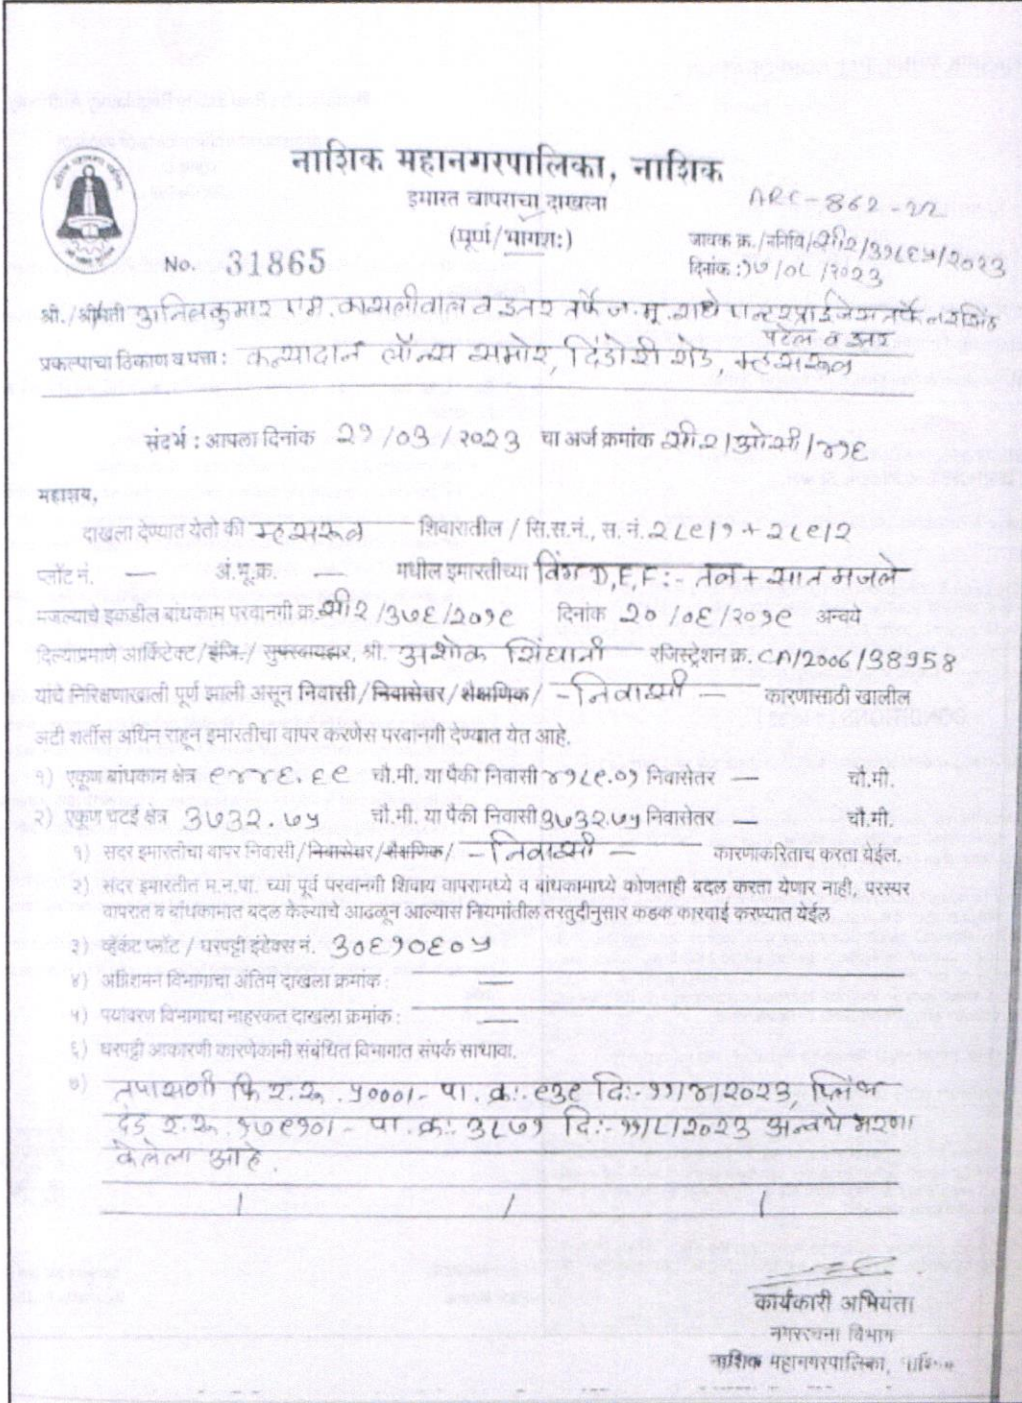 नाशिक महानगरपालिका, नाशिक
इमारत वापराचा दाखला
(पूर्ण/भागशः)
ARC-862-22
No. 31865
जावक क्र./ननिवि/सी२/३१८६५/२०२३
दिनांक :१७/०८/२०२३
श्री./श्रीमती अनिलकुमार एम. कासलीवाल व इतर तर्फे ज.मु. राधे एन्टरप्राईजेस तर्फे नरसिंह
पटेल व इतर
प्रकल्पाचा ठिकाण व पत्ता : कन्यादान लॉन्स समोर, दिंडोरी रोड, म्हसरूळ
संदर्भ : आपला दिनांक २१/०३/२०२३ चा अर्ज क्रमांक सी२/ओसी/४१६
महाशय,
दाखला देण्यात येतो की म्हसरूळ शिवारातील / सि.स.नं., स. नं. २८९/१ + २८९/२
प्लॉट नं. — अं.भू.क्र. — मधील इमारतीच्या विंग D,E,F:- तळ + सात मजले
मजल्याचे इकडील बांधकाम परवानगी क्र. सी२/३७६/२०१९ दिनांक २०/०६/२०१९ अन्वये
दिल्याप्रमाणे आर्किटेक्ट/इंजि./ सुपरवायझर, श्री. अशोक सिंघानी रजिस्ट्रेशन क्र. CA/2006/38958
यांचे निरिक्षणाखाली पूर्ण झाली असून निवासी/निवासेत्तर/शैक्षणिक/ -निवासी- कारणासाठी खालील
अटी शर्तीस अधिन राहून इमारतीचा वापर करणेस परवानगी देण्यात येत आहे.
१) एकूण बांधकाम क्षेत्र ९४४६.६९ चौ.मी. या पैकी निवासी ४१८९.०१ निवासेतर — चौ.मी.
२) एकूण चटई क्षेत्र ३७३२.७५ चौ.मी. या पैकी निवासी ३७३२.७५ निवासेतर — चौ.मी.
१) सदर इमारतीचा वापर निवासी/निवासेत्तर/शैक्षणिक/ -निवासी- कारणाकरिताच करता येईल.
२) सदर इमारतीत म.न.पा. च्या पूर्व परवानगी शिवाय वापरामध्ये व बांधकामाध्ये कोणताही बदल करता येणार नाही, परस्पर
वापरात व बांधकामात बदल केल्याचे आढळून आल्यास नियमांतील तरतुदीनुसार कडक कारवाई करण्यात येईल
३) व्हॅकंट प्लॉट / घरपट्टी इंडेक्स नं. ३०६१०६०५
४) अग्निशमन विभागाचा अंतिम दाखला क्रमांक : —
५) पर्यावरण विभागाचा नाहरकत दाखला क्रमांक : —
६) घरपट्टी आकारणी कारणेकामी संबंधित विभागात संपर्क साधावा.
७) तपासणी फि र.रू. ५०००/- पा. क्र:. ९३९ दि:- ११/४/२०२३, प्लिंथ
दंड र.रू. १७९१०/- पा. क्र:. ३८७१ दि:- ११/८/२०२३ अन्वये भरणा
केलेला आहे.
कार्यकारी अभियंता
नगररचना विभाग
नाशिक महानगरपालिका, नाशिक